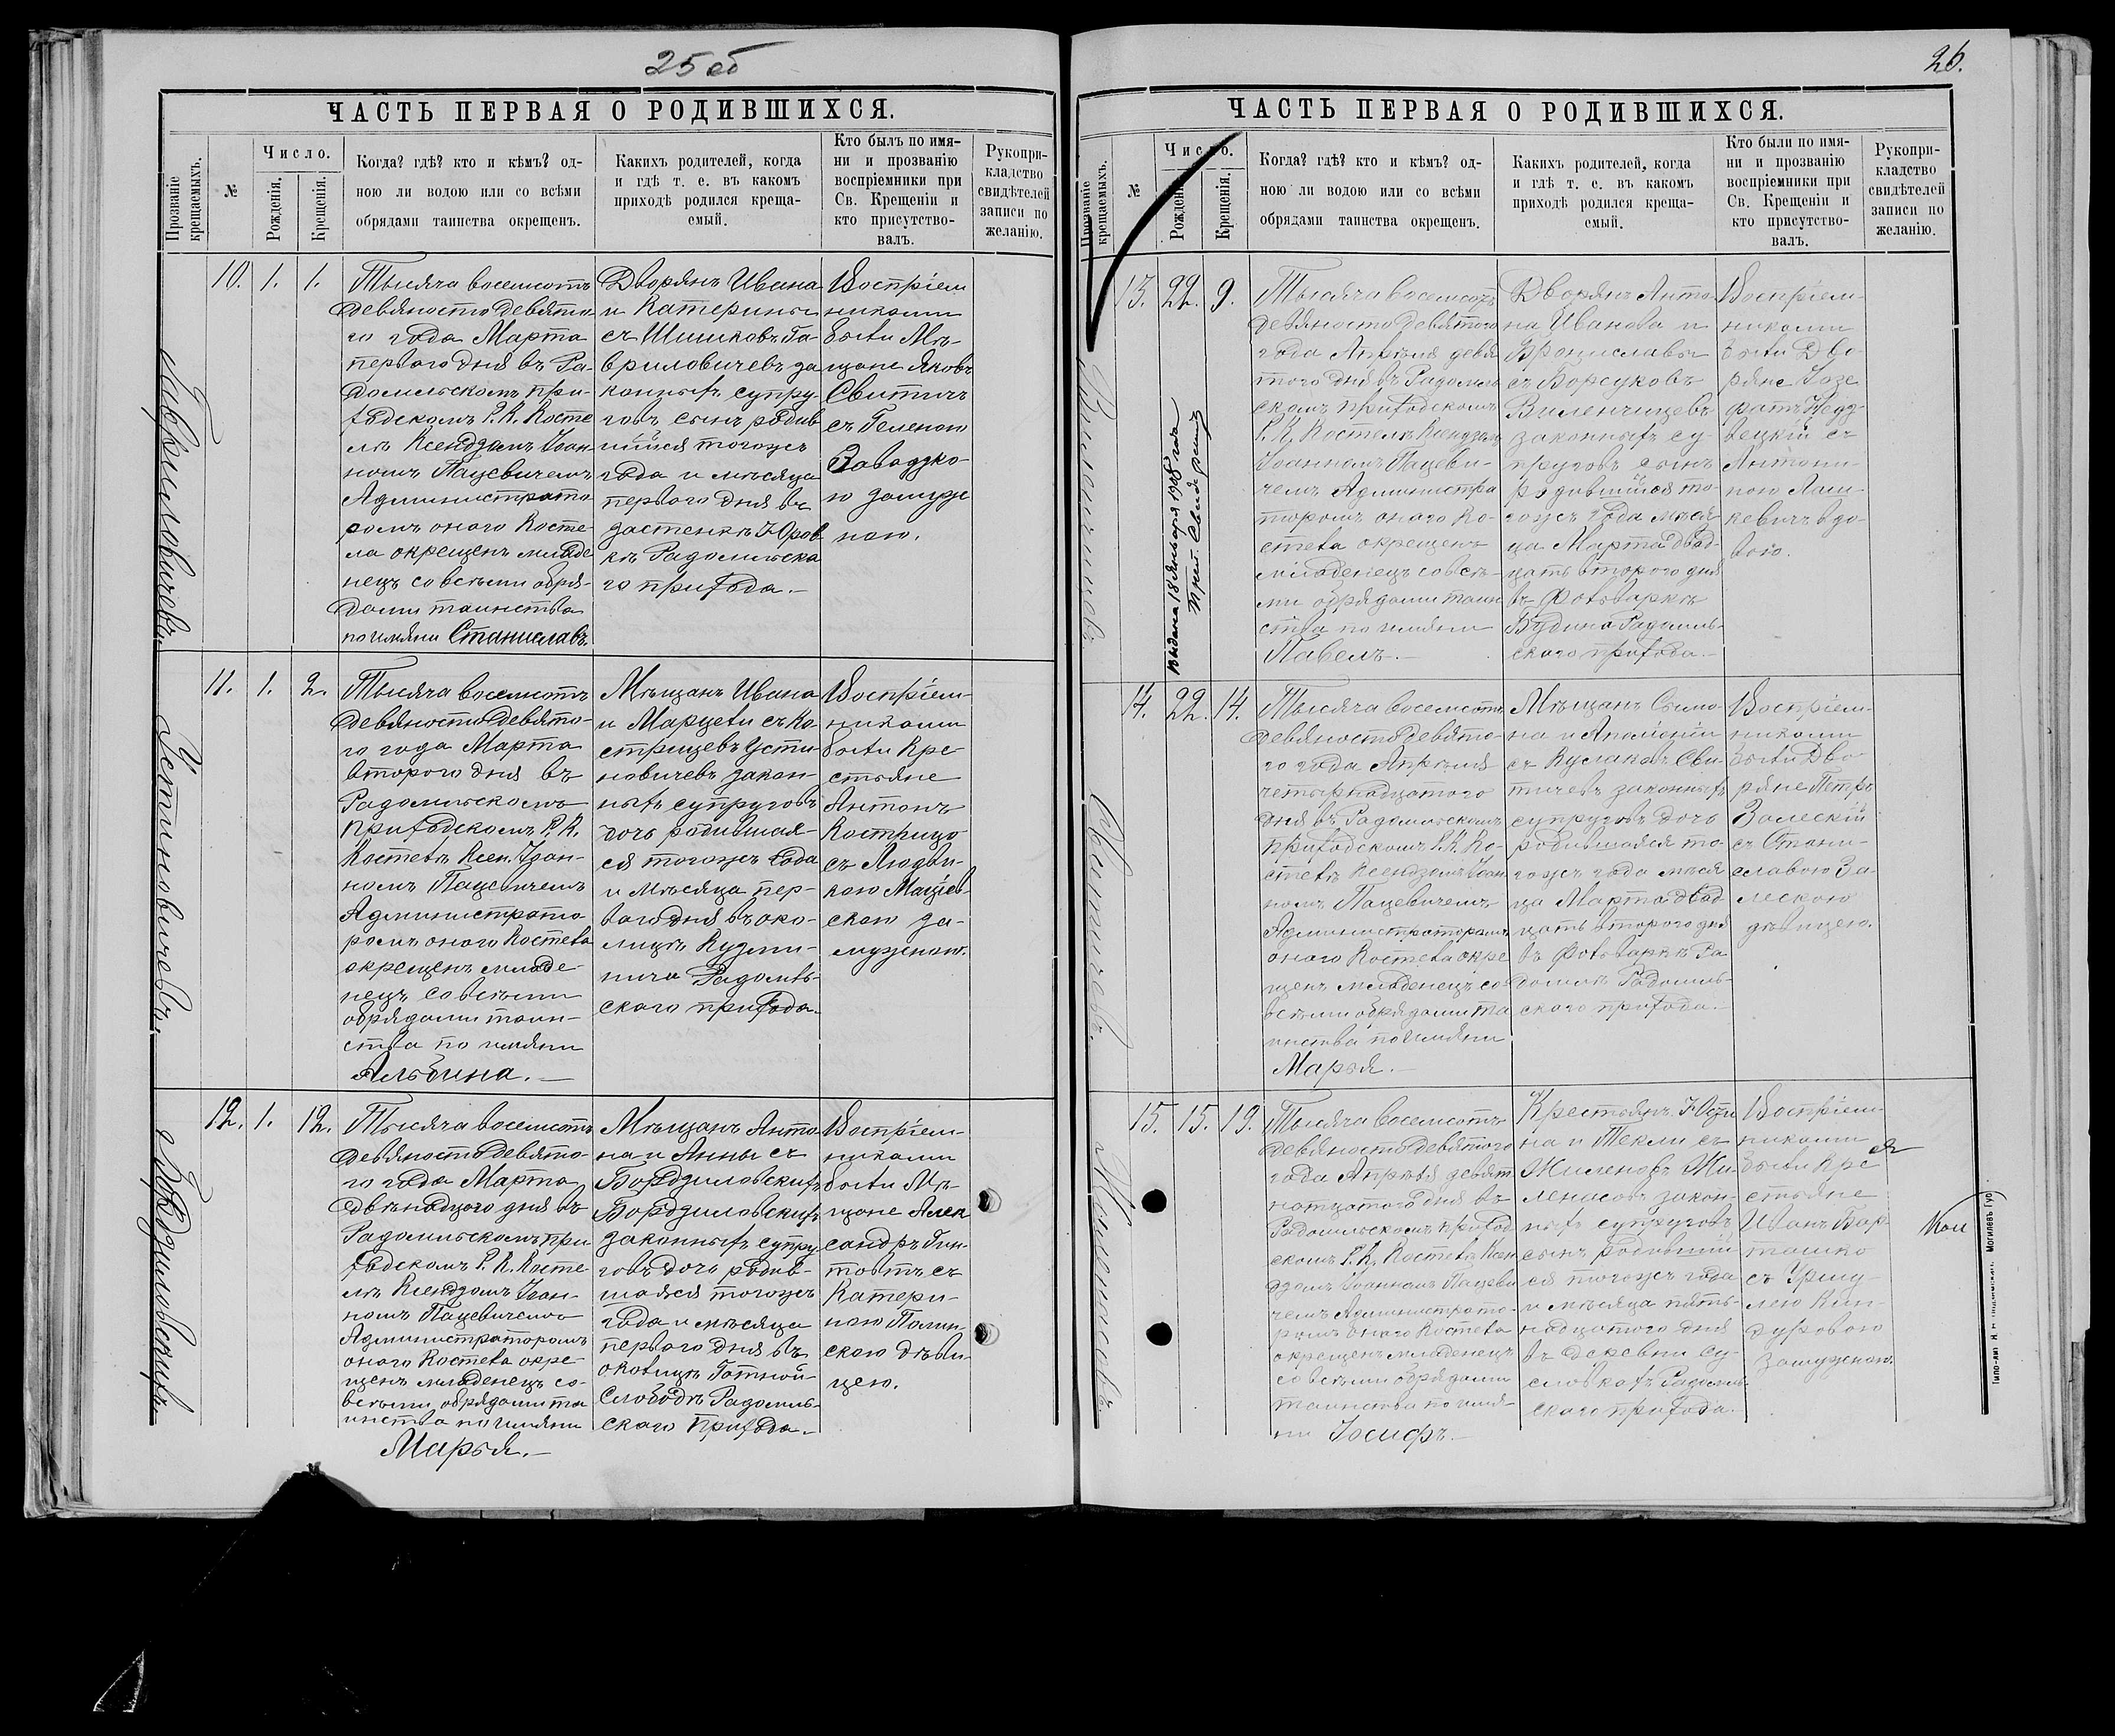 25 об
ЧАСТЬ ПЕРВАЯ О РОДИВШИХСЯ.
Прозваніе крещаемыхъ.
№
Число.
Рожденія.
Крещенія.
Когда? гдѣ? кто и кѣмъ? од-
ною ли водою или со всѣми
обрядами таинства окрещенъ.
Какихъ родителей, когда
и гдѣ т. е. въ какомъ
приходѣ родился креща-
емый.
Кто былъ по имя-
ни и прозванію
воспріемники при
Св. Крещеніи и
кто присутство-
валъ.
Рукопри-
кладство
свидѣтелей
записи по
желанію.
Гавриловичевъ
10. 1. 1.
Тысяча восемсотъ
девяносто девято-
го года Марта
перваго дня въ Ра-
домльскомъ при-
ходскомъ Р. К. Косте
лѣ Ксендзомъ Іоан-
номъ Пацевичемъ
Администрато-
ромъ онаго Косте-
ла окрещенъ младе
нецъ со всѣми обря-
дами таинства
по имяни Станиславъ.
Дворянъ Ивана
и Катерины
съ Шишковъ Га-
вриловичевъ за
конныхъ супру-
говъ сынъ родив
шійся тогожъ
года и мѣсяца
перваго дня въ
застенкѣ Юров
кѣ Радомльска
го прихода.—
Воспріем
никами
были Мѣ-
щане Яковъ
Свитичъ
съ Геленою
Завадзко-
ю замуж
ною.
Устиновичевъ.
11. 1. 2.
Тысяча восемсотъ
девяносто девято-
го года Марта
втораго дня въ
Радомльскомъ
приходскомъ Р. К.
Костелѣ Ксен. Іоан-
номъ Пацевичемъ
Администрато-
ромъ онаго Костела
окрещенъ младе-
нецъ со всѣми
обрядами таин-
ства по имяни
Альбина.—
Мѣщанъ Ивана
и Марцели съ Ко
стрицевъ Усти-
новичевъ закон-
ныхъ супруговъ
дочь родившая-
ся тогожъ года
и мѣсяца пер-
ваго дня въ око-
лицѣ Кузми-
нича Радомль-
скаго прихода.
Воспріем-
никами
были Кре
стьяне
Антонъ
Кострицо
съ Людви-
кою Маціев-
скою за-
мужною.
Бордзиловскихъ
12. 1. 12.
Тысяча восемсотъ
девяносто девято-
го года Марта
двѣнадцаго дня въ
Радомльскомъ при
ходскомъ Р. К. Косте
лѣ Ксендзомъ Іоан-
номъ Пацевичемъ
Администраторомъ
онаго Костела окре-
щенъ младенецъ со-
всѣми обрядами та
инства по имяни
Марья.—
Мѣщанъ Анто-
на и Анны съ
Бордзиловскихъ
Бордзиловскихъ
законныхъ супру
говъ дочь родив-
шаяся тогожъ
года и мѣсяца
перваго дня въ
околицѣ Гатной
Слободѣ Радомль-
скаго прихода.—
Воспріем-
никами
были Мѣ-
щане Алек
сандръ Гин-
товтъ съ
Катери-
ною Полин-
скою дѣви-
цею.
26.
ЧАСТЬ ПЕРВАЯ О РОДИВШИХСЯ.
Прозваніе крещаемыхъ.
№
Число.
Рожденія.
Крещенія.
Когда? гдѣ? кто и кѣмъ? од-
ною ли водою или со всѣми
обрядами таинства окрещенъ.
Какихъ родителей, когда
и гдѣ т. е. въ какомъ
приходѣ родился креща-
емый.
Кто были по имя-
ни и прозванію
воспріемники при
Св. Крещеніи и
кто присутство-
валъ.
Рукопри-
кладство
свидѣтелей
записи по
желанію.
Виленчицевъ
Выдана 18 Января 1908 года
13. 22. 9.
Тысяча восемсотъ
девяносто девятого
года Апрѣля девя
того дня въ Радомль
скомъ приходскомъ
Р. К. Костелѣ Ксендзомъ
Іоанномъ Пацеви-
чемъ Администра
торомъ онаго Ко-
стела окрещенъ
младенецъ со всѣ-
ми обрядами таин
ства по имяни
Павелъ.—
Дворянъ Анто-
на Иванова и
Брониславы
съ Борсуковъ
Виленчицевъ
законныхъ су-
пруговъ сынъ
родившійся то-
гожъ года мѣся
ца Марта двад-
цать втораго дня
въ фольваркѣ
Будино Радомль-
скаго прихода.—
Воспріем-
никами
были Дво-
ряне Іозе
фатъ Недз-
вецкій съ
Антони-
ною Лаш-
кевичъ вдо-
вою.
Свитичевъ.
14. 22. 14.
Тысяча восемсотъ
девяносто девято-
го года Апрѣля
четырнадцатого
дня въ Радомльскомъ
приходскомъ Р. К. Ко-
стелѣ Ксендзомъ Іоан
номъ Пацевичемъ
Администраторомъ
онаго Костела окре
щенъ младенецъ со
всѣми обрядами та
инства по имяни
Марья.—
Мѣщанъ Симо-
на и Аполоніи
съ Кулаковъ Сви
тичевъ законныхъ
супруговъ дочь
родившаяся то-
гожъ года мѣся
ца Марта двад
цать втораго дня
въ фольваркѣ Ра
домлѣ Радомль-
скаго прихода.—
Воспріем-
никами
были Дво
ряне Петръ
Залескій
съ Стани-
славою За-
лескою
дѣвицею.
Жиленковъ
15. 15. 19.
Тысяча восемсотъ
девяносто девятого
года Апрѣля девят
натцатого дня въ
Радомльскомъ приход
скомъ Р. К. Костелѣ Ксен
дзомъ Іоанномъ Пацеви
чемъ Администрато-
ромъ онаго Костела
окрещенъ младенецъ
со всѣми обрядами
таинства по имя-
ни Іосифъ.—
Крестьянъ Юсти
на и Текли съ
Жиленовъ Жи
закон-
ныхъ супруговъ
сынъ родившій
ся тогожъ года
и мѣсяца пять-
надцатого дня
въ деревни Су-
словкахъ Радомль-
скаго прихода.—
Воспріем-
никами
были Кре
стьяне
Иванъ Бар-
ташко
съ Уршу-
лею Кин-
дуровою
замужною.